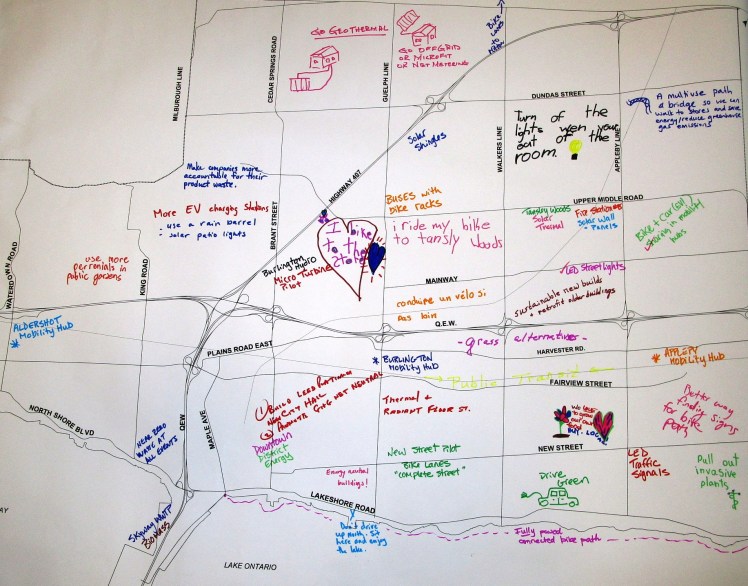 Bike
Lanes
to
GO GEOTHERMAL
GO OFF GRID
OR MICROFIT
OR NET METERING
MILBUROUGH LINE
CEDAR SPRINGS ROAD
GUELPH LINE
DUNDAS STREET
A multiuse path
a bridge so we can
walk to stores and save
energy/reduce greenhouse
gas emissions
Turn of the
lights wen your
out of the
room.
WALKERS LINE
APPLEBY LINE
Solar
Shingles
HIGHWAY 407
Make companies more
accountable for their
product waste.
More EV charging stations
- use a rain barrel
- solar patio lights
BUSES with
bike racks
UPPER MIDDLE ROAD
Tansley Woods
Solar
Thermal
Fire Station #8
Solar Wall
- Panels
Bike + Car (EV)
sharing - mobility
hubs
BRANT STREET
I bike
to the
store
i ride my bike
to tansly woods
use more
perennials in
public gardens
WATERDOWN ROAD
KING ROAD
Burlington Hydro
Micro Turbine
Pilot
MAINWAY
LED Street lights
conduire un vélo si
pas loin
sustainable new builds
+ retrofit older buildings
Q.E.W.
ALDERSHOT
Mobility Hub
PLAINS ROAD EAST
- grass alternatives -
HARVESTER RD.
BURLINGTON
Mobility Hub
APPLEBY
Mobility Hub
- Public Transit -
FAIRVIEW STREET
NORTH SHORE BLVD
QEW
MAPLE AVE
① BUILD LEED PLATINUM
NEW CITY HALL
② PROMOTE GHG NET NEUTRAL
Thermal +
RADIANT FLOOR ST.
We love
to grow
our own
food
BUY - LOCAL
Better way
finding signs
for bike
paths
NEAR ZERO
WASTE AT
ALL EVENTS
Downtown
District
Energy
New Street Pilot
Bike Lanes
"Complete Street"
NEW STREET
LED
Traffic
Signals
Pull out
invasive
plants
Energy neutral
buildings!
Drive
Green
Skyway WWTP
BIOMASS
LAKESHORE ROAD
Don't drive
up north. Sit
here and enjoy
the lake.
Fully paved
connected bike path
LAKE ONTARIO